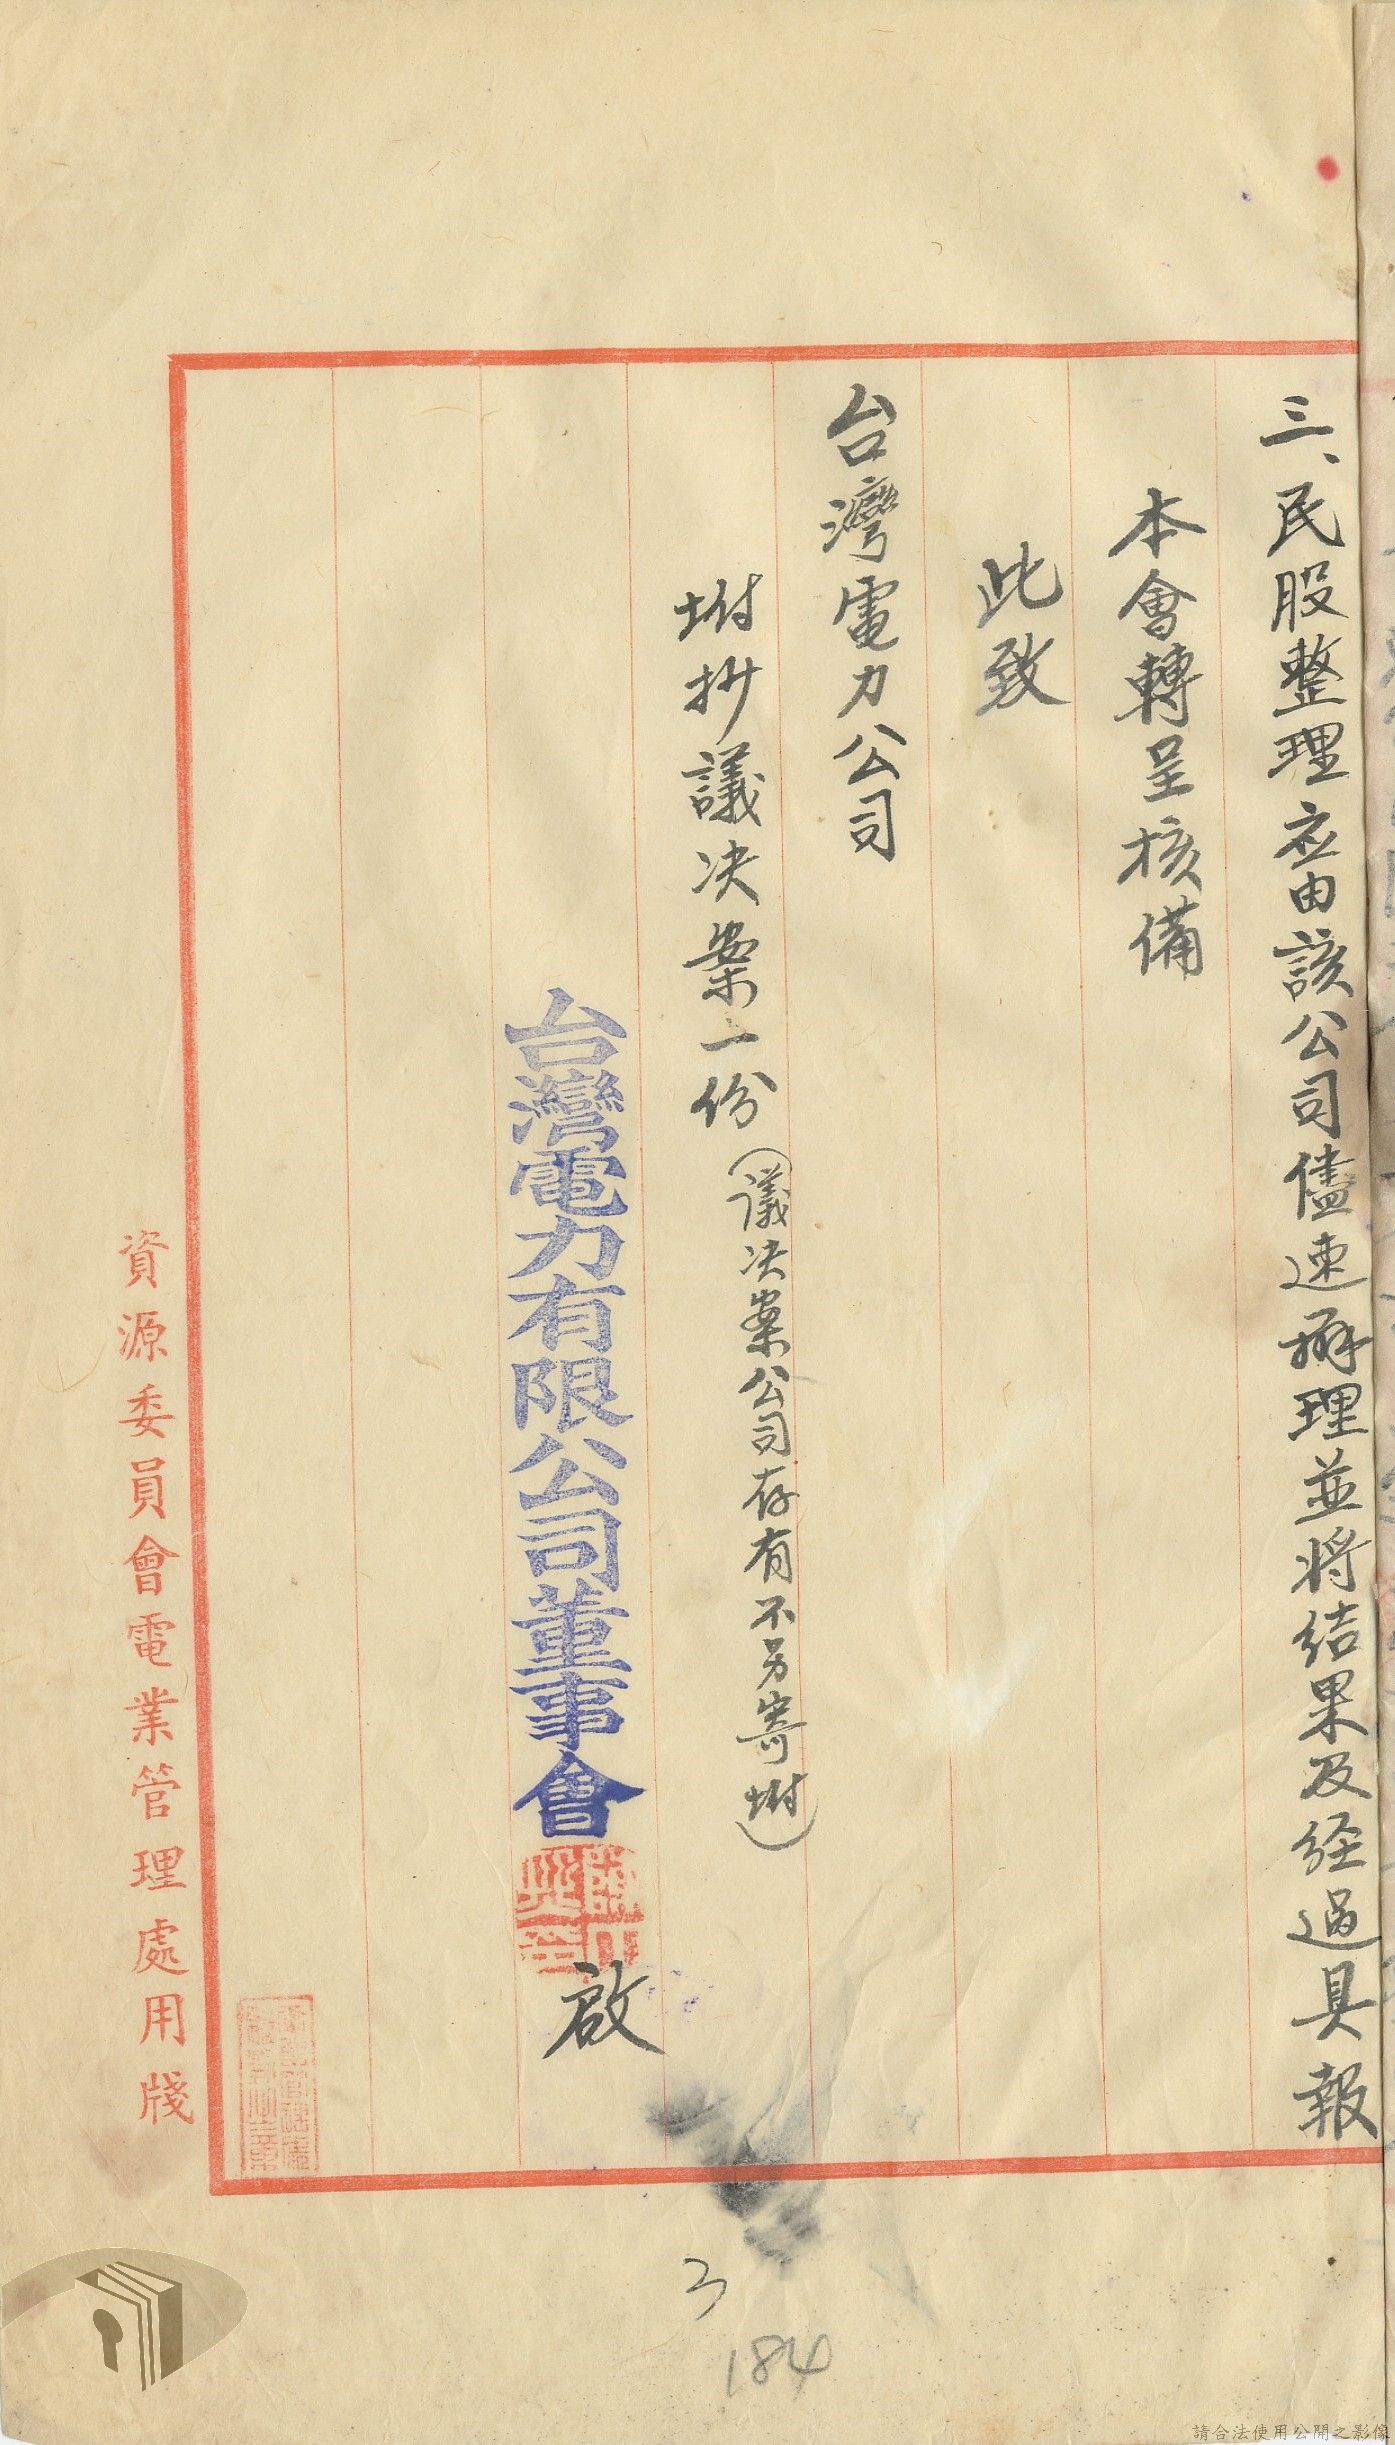 三、民股整理應由該公司儘速辦理並將結果及經過具報
本會轉呈核備
此致
台灣電力公司
坿抄議决案一份(議决案公司存有不另寄坿)
台灣電力有限公司董事會
啟
資源委員會電業管理處用牋
3
184
請合法使用公開之影像